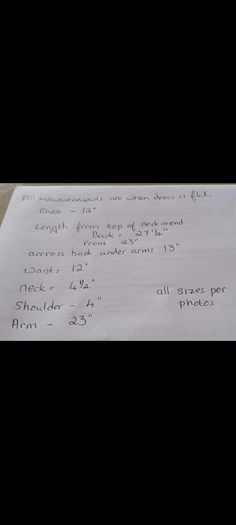 All measurements are when dress is flat.
Chest - 12"
Length from top of neck → end
Back = 27 1/2"
Front 23"
accross back under arms 13"
Waist = 12"
neck - 4 1/2"
Shoulder - 4"
all sizes per
photos
Arm - 23"